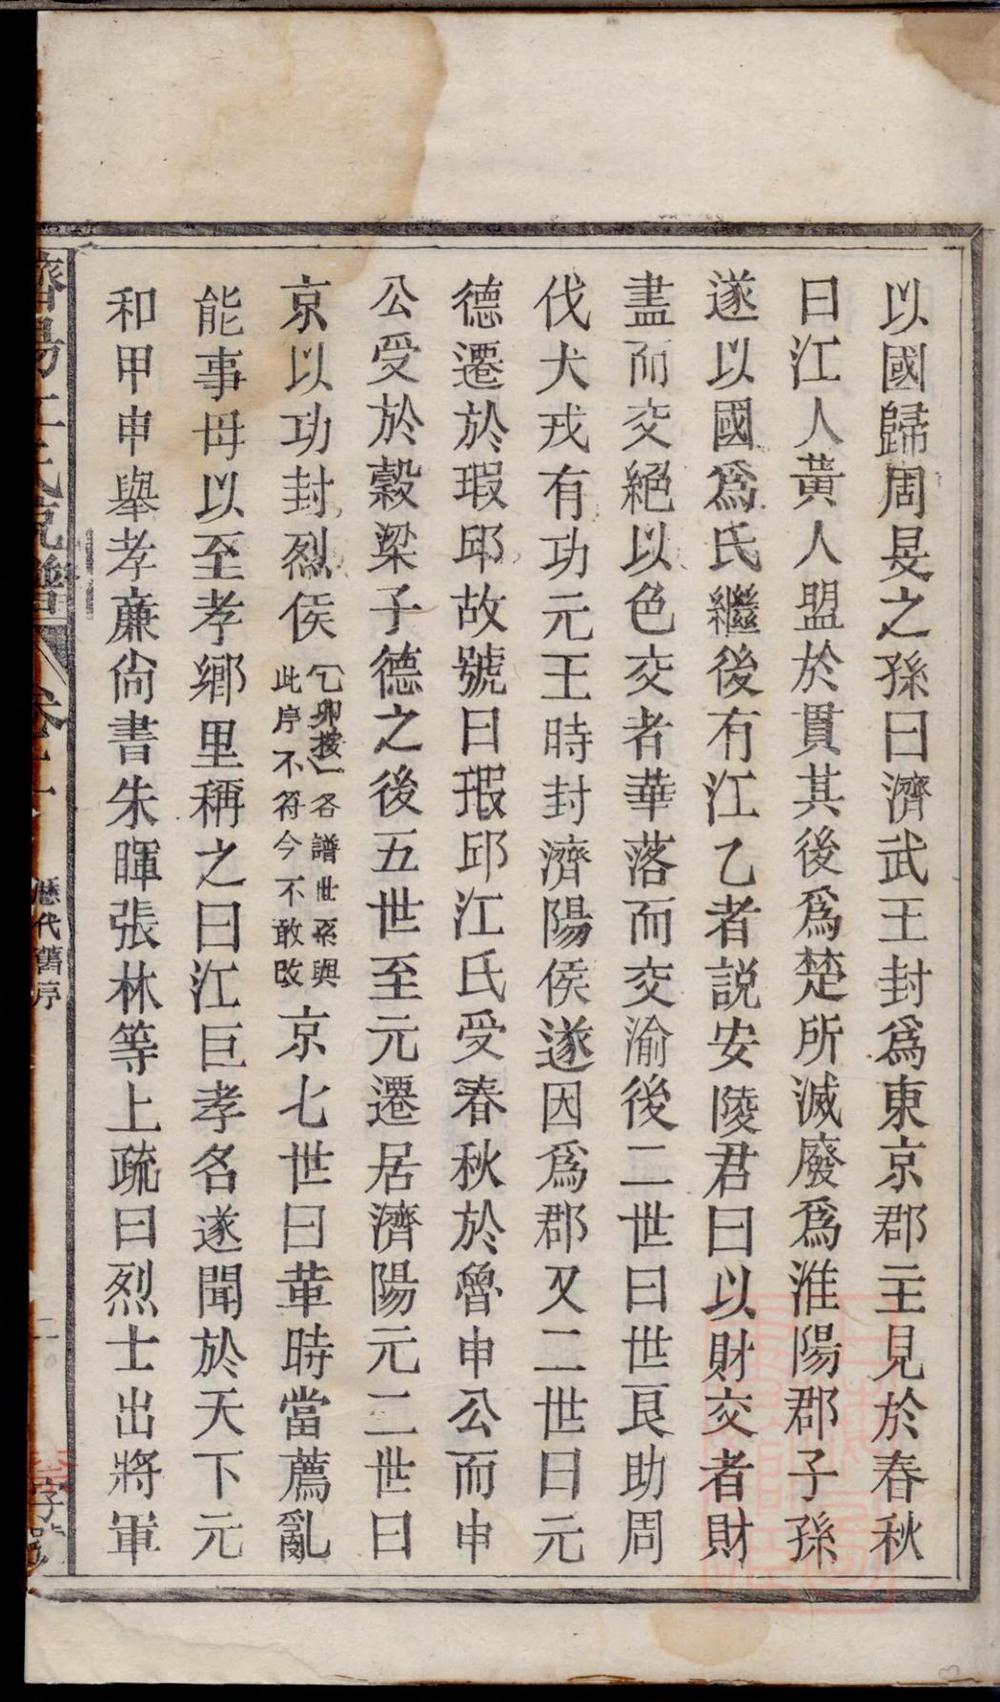 以國歸周旻之孫曰濟武王封爲東京郡主見於春秋
曰江人黃人盟於貫其後爲楚所滅廢爲淮陽郡子孫
遂以國爲氏繼後有江乙者説安陵君曰以財交者財
盡而交絕以色交者華落而交渝後二世曰世艮助周
伐犬戎有功元王時封濟陽侯遂因爲郡又二世曰元
德遷於瑕邱故號曰瑕邱江氏受春秋於魯申公而申
公受於榖梁子德之後五世至元遷居濟陽元二世曰
京以功封烈侯〔乙卯按〕各譜世系與此序不符今不敢改京七世曰革時當薦亂
能事母以至孝鄉里稱之曰江巨孝名遂聞於天下元
和甲申舉孝廉尙書朱暉張林等上疏曰烈士出將軍
濟陽江氏統譜 卷十 歷代舊序 二